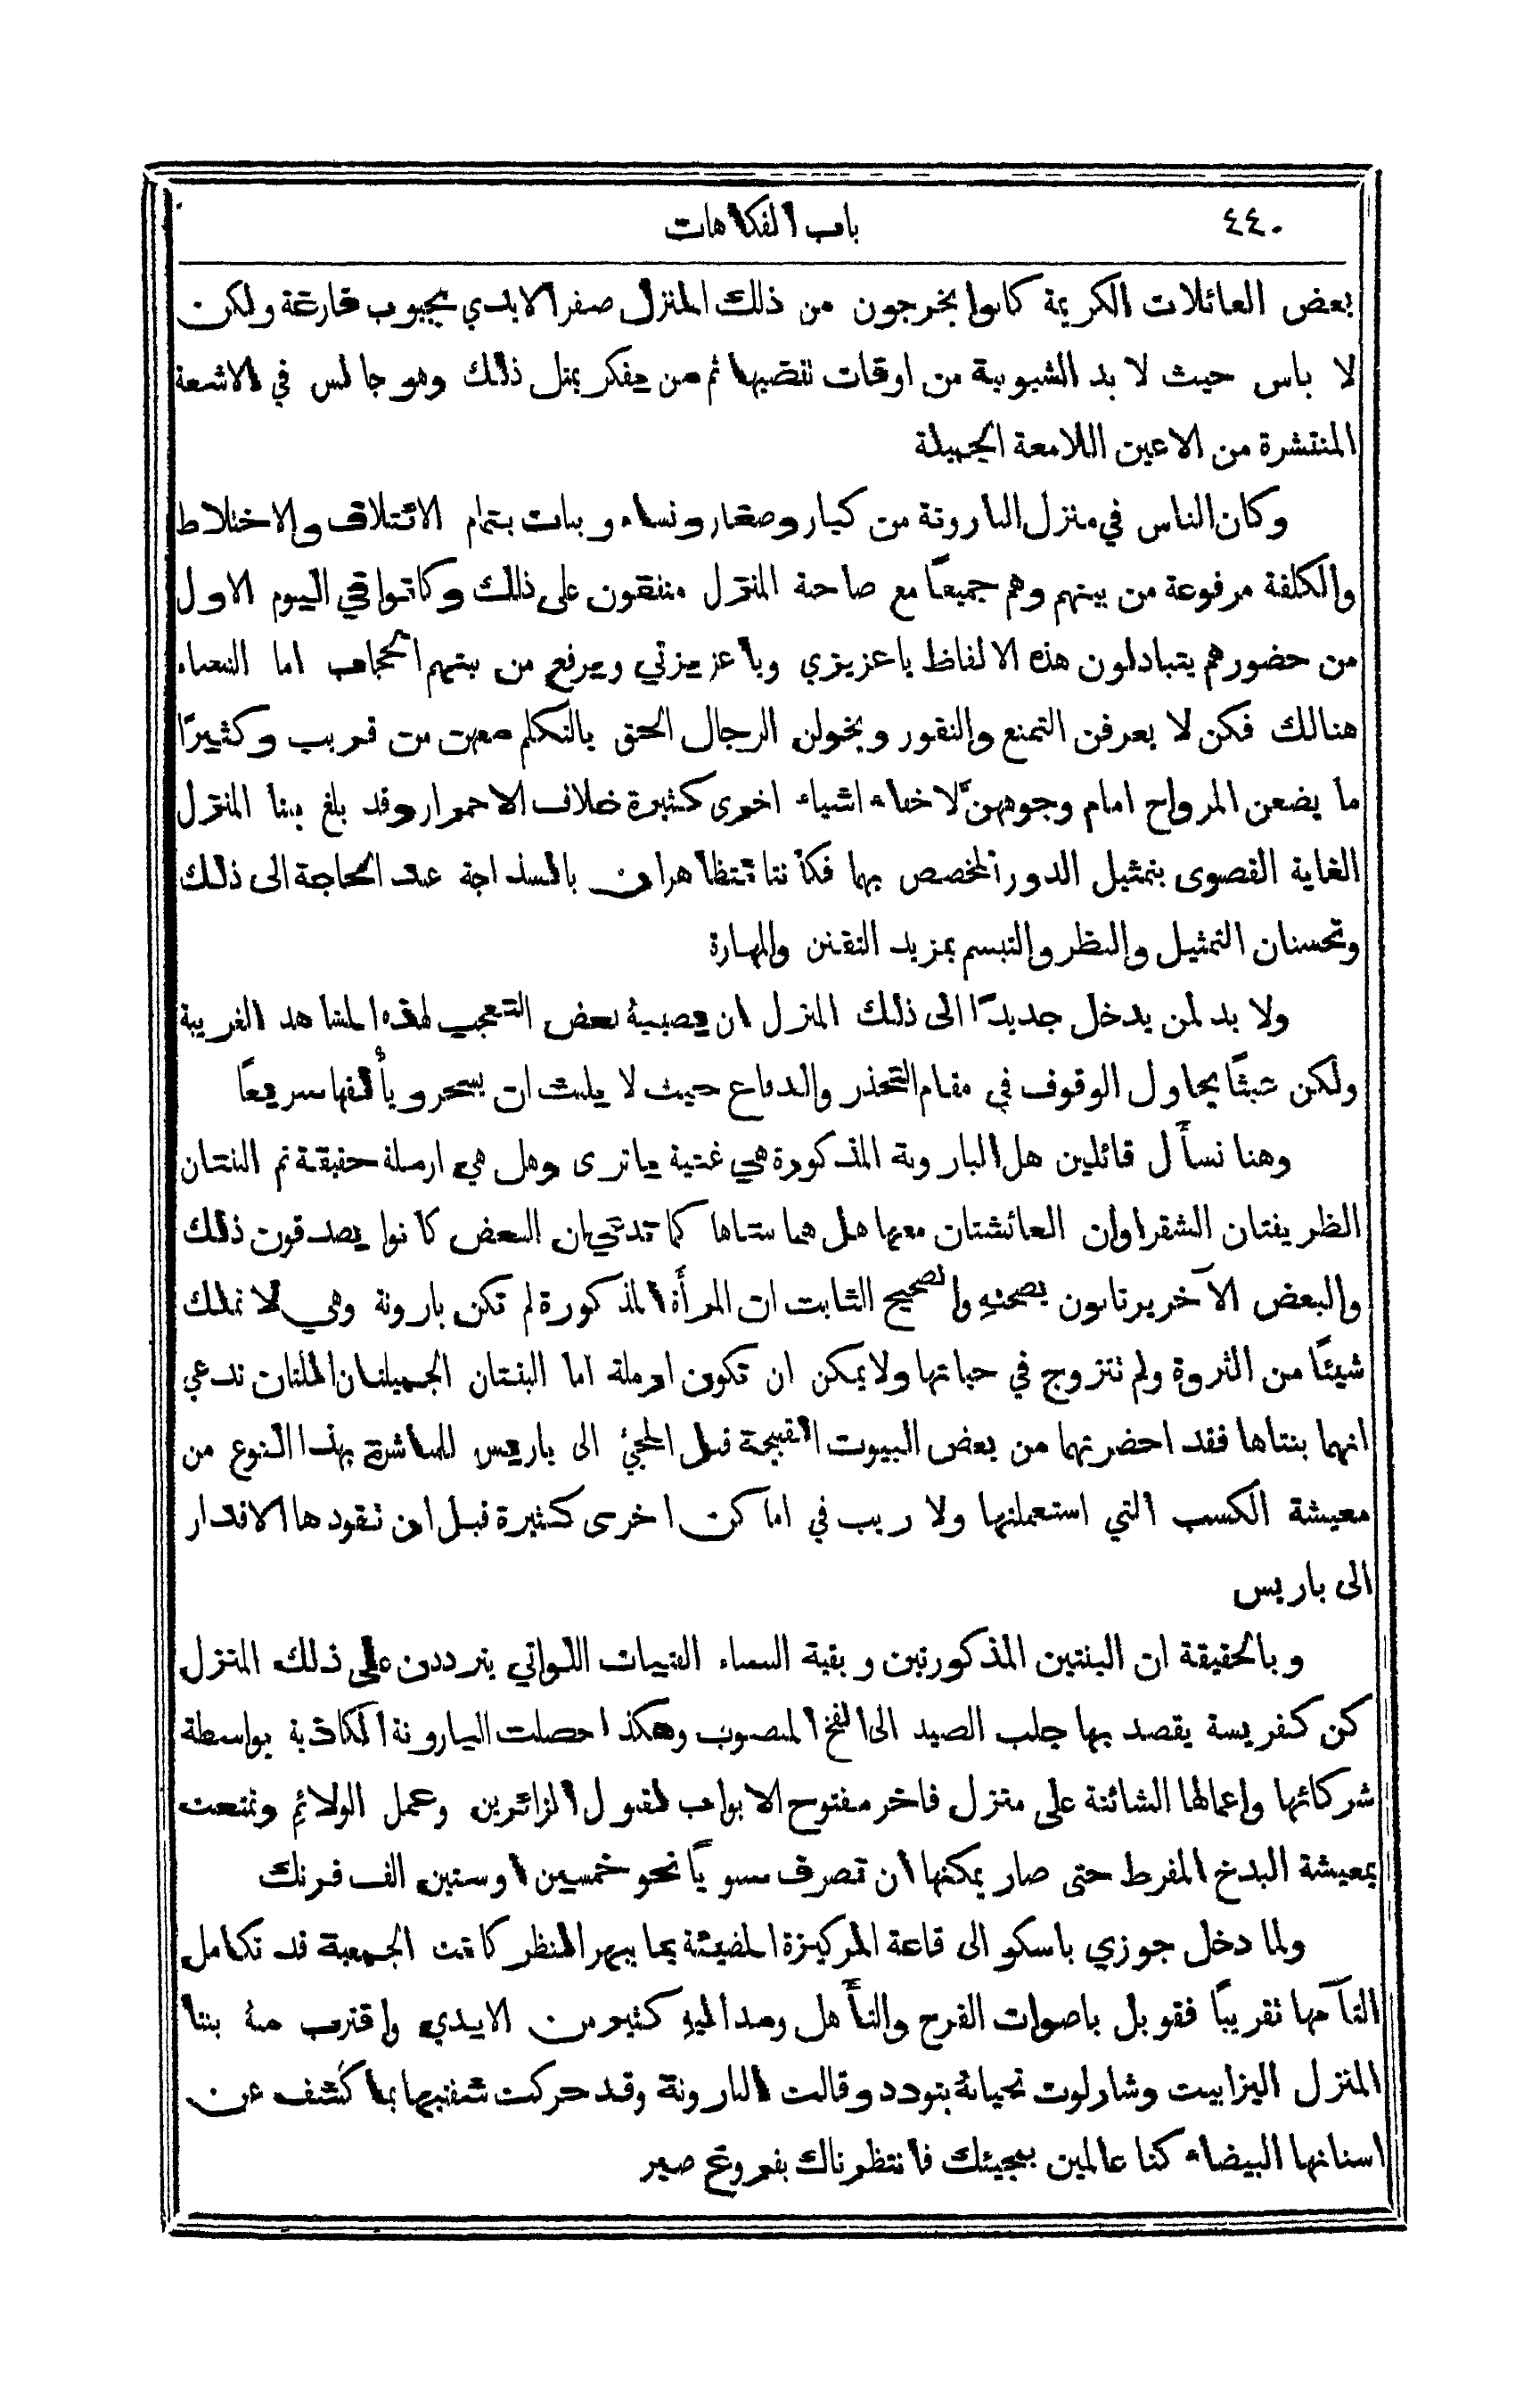 ٤٤٠
باب الفكاهات
بعض العائلات الكريمة كانوا يخرجون من ذلك المنزل صفر الايدي بجيوب فارغة ولكن
لا باس حيث لا بد الشبوبية من اوقات تقضيها ثم من يفكر بمثل ذلك وهو جالس في الاشعة
المنتشرة من الاعين اللامعة الجميلة
وكان الناس في منزل البارونة من كبار وصغار ونساء وبنات بتمام الائتلاف والاختلاط
والكلفة مرفوعة من بينهم وهم جميعًا مع صاحبة المنزل متفقون على ذلك وكانوا في اليوم الاول
من حضورهم يتبادلون هذه الالفاظ يا عزيزي ويا عزيزتي ويرفع من بينهم الحجاب اما النساء
هنالك فكن لا يعرفن التمنع والنفور ويخولن الرجال الحق بالتكلم معهن من قريب وكثيرًا
ما يضعن المرواح امام وجوههنَّ لاخفاء اشياء اخرى كثيرة خلاف الاحمرار وقد بلغ بنتا المنزل
الغاية القصوى بتمثيل الدور المخصص بهما فكانتا تتظاهران بالسذاجة عند الحاجة الى ذلك
وتحسنان التمثيل والنظر والتبسم بمزيد التفنن والمهارة
ولا بد لمن يدخل جديدًا الى ذلك المنزل ان يصيبهُ بعض التعجب لهذه المشاهد الغريبة
ولكن عبثًا يحاول الوقوف في مقام التحذر والدفاع حيث لا يلبث ان يسحر ويألفها سريعًا
وهنا نسأَل قائلين هل البارونة المذكورة هي غنية يا ترى وهل هي ارملة حقيقة ثم البنتان
الظريفتان الشقراوان العائشتان معها هل هما بنتاها كما تدعي ان البعض كانوا يصدقون ذلك
والبعض الآخر يرتابون بصحتهِ والصحيح الثابت ان المرأَة المذكورة لم تكن بارونة وهي لا تملك
شيئًا من الثروة ولم تتزوج في حياتها ولا يمكن ان تكون ارملة اما البنتان الجميلتان اللتان تدعي
انهما بنتاها فقد احضرتهما من بعض البيوت القبيحة قبل المجيْ الى باريس للمباشرة بهذا النوع من
معيشة الكسب التي استعملتها ولا ريب في اماكن اخرى كثيرة قبل ان تقودها الاقدار
الى باريس
وبالحقيقة ان البنتين المذكورتين وبقية النساء الفتيات اللواتي يترددن على ذلك المنزل
كن كفريسة يقصد بها جلب الصيد الى الفخ المنصوب وهكذا حصلت البارونة الكاذبة بواسطة
شركائها واعمالها الشائنة على منزل فاخر مفتوح الابواب لقبول الزائرين وعمل الولائم وتمتعت
بمعيشة البذخ المفرط حتى صار يمكنها ان تصرف سنويًا نحو خمسين او ستين الف فرنك
ولما دخل جوزي باسكو الى قاعة المركيزة المضيئة بما يبهر المنظر كانت الجمعية قد تكامل
التآمها تقريبًا فقوبل باصوات الفرح والتأَهل ومد اليهِ كثير من الايدي واقترب منهُ بنتا
المنزل اليزابيت وشارلوت تحيانهُ بتودد وقالت البارونة وقد حركت شفتيها بما كشف عن
اسنانها البيضاء كنا عالمين بمجيئك فانتظرناك بفروغ صبر